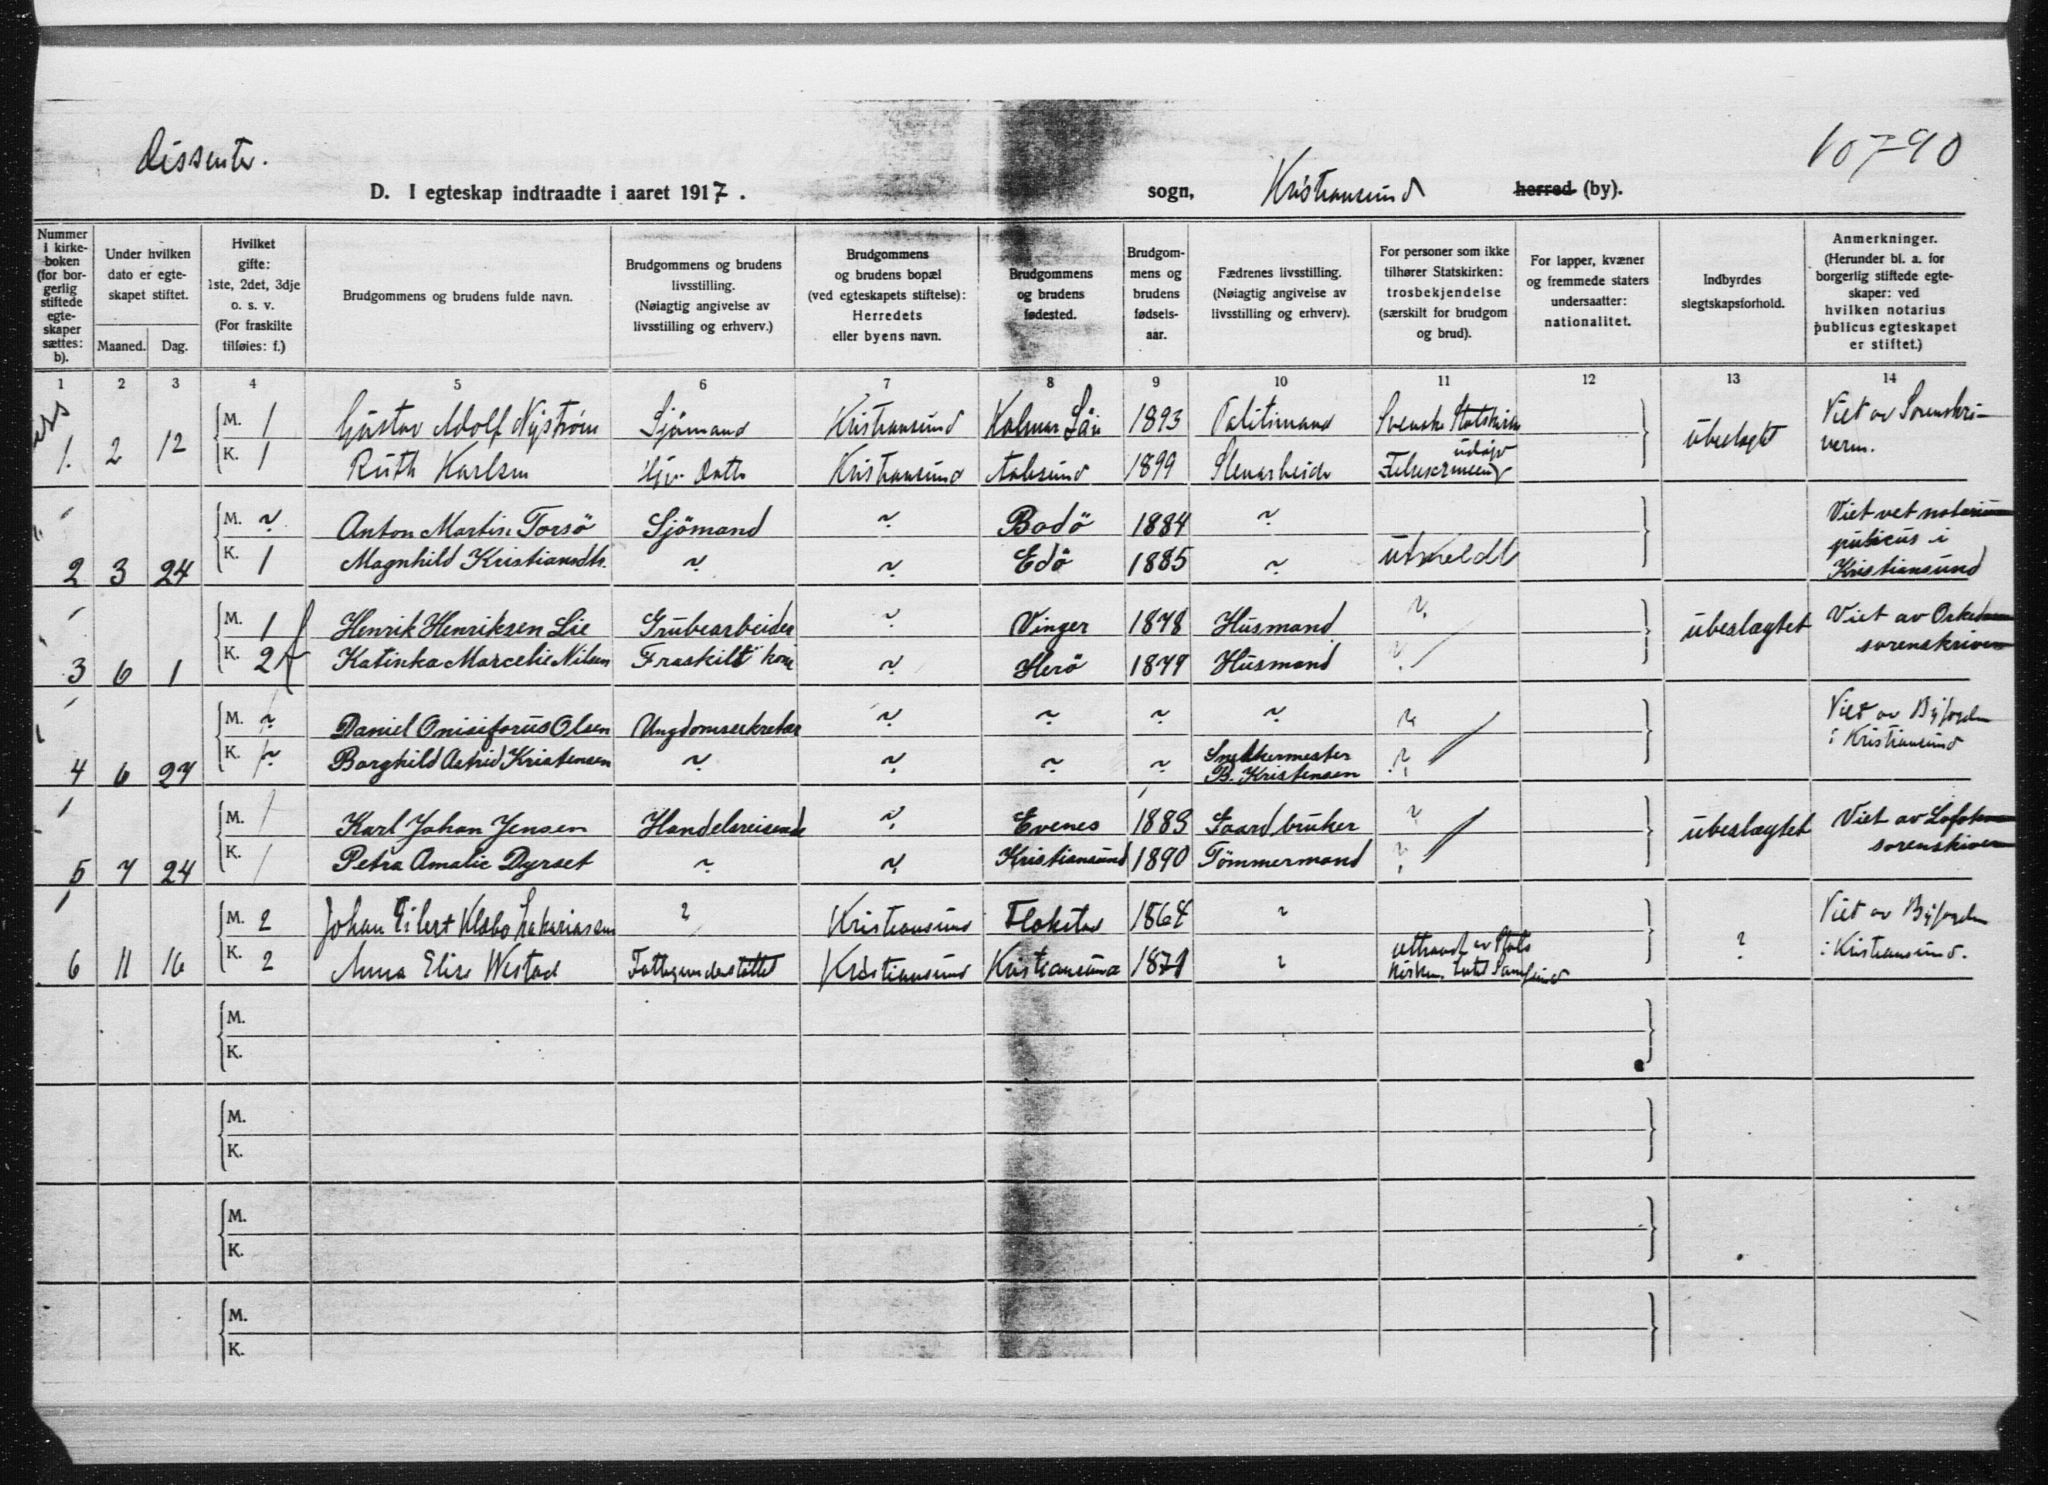 Dissenter.
10790
D. I egteskap indtraadte i aaret 1917.
sogn, Kristiansund herred (by).
Nummer i kirkeboken (for borgerlig stiftede egteskaper sættes: b).
Under hvilken dato er egteskapet stiftet.
Maaned. Dag.
Hvilket gifte: 1ste, 2det, 3dje o. s. v. (For fraskilte tilføies: f.)
Brudgommens og brudens fulde navn.
Brudgommens og brudens livsstilling. (Nøiagtig angivelse av livsstilling og erhverv.)
Brudgommens og brudens bopæl (ved egteskapets stiftelse): Herredets eller byens navn.
Brudgommens og brudens fødested.
Brudgommens og brudens fødselsaar.
Fædrenes livsstilling. (Nøiagtig angivelse av livsstilling og erhverv).
For personer som ikke tilhører Statskirken: trosbekjendelse (særskilt for brudgom og brud).
For lapper, kvæner og fremmede staters undersaatter: nationalitet.
Indbyrdes slegtskapsforhold.
Anmerkninger. (Herunder bl. a. for borgerlig stiftede egteskaper: ved hvilken notarius publicus egteskapet er stiftet.)
1 2 3 4 5 6 7 8 9 10 11 12 13 14
M. 1 Gustav Adolf Nyström Sjömand Kristiansund Kalmar Län 1893 Svenske Statskirke Viet av Sorenskri-
1. 2 12 K. 1 Ruth Karlsen Kristiansund Aalesund 1899 Stenarbeider ubeslegtet veren.
M. ~ Anton Martin Torsö Sjömand ~ Bodö 1884 ~ Viet vet notarius
2 3 24 K. 1 Magnhild Kristiansdtr. ~ ~ Edö 1885 ~ utmeldt publicus i
Kristiansund
M. 1 Henrik Henriksen Lie Grubearbeider ~ Vinger 1878 Husmand ~ ubeslægtet Viet av
3 6 1 K. 2 f Katinka Marcelie Nilsen Fraskilt kone ~ Herö 1879 Husmand ~ sorenskriver
M. ~ Daniel Onisiforus Olsen Ungdomssekretær ~ ~ ~ ~ ~ Viet av Byfogden
4 6 27 K. ~ Borghild Astrid Kristensen ~ ~ ~ ~ Snekkermester B. Kristensen ~ i Kristiansund
M. 1 Karl Johan Jensen Handelsreisende ~ Evenes 1883 Gaardbruker ~ ubeslægtet Viet av Lofoten
5 7 24 K. 1 Petra Amalie Dyrset ~ ~ Kristiansund 1890 Tömmermand ~ sorenskriver
M. 2 Johan Eilert Zakariassen ? Kristiansund Flakstad 1864 ? Viet av Byfogden
6 11 16 K. 2 Anna Elise Westad Fattigunderstöttet Kristiansund Kristiansund 1871 ? uttraadt av Stats ? i Kristiansund.
M.
K.
M.
K.
M.
K.
M.
K.